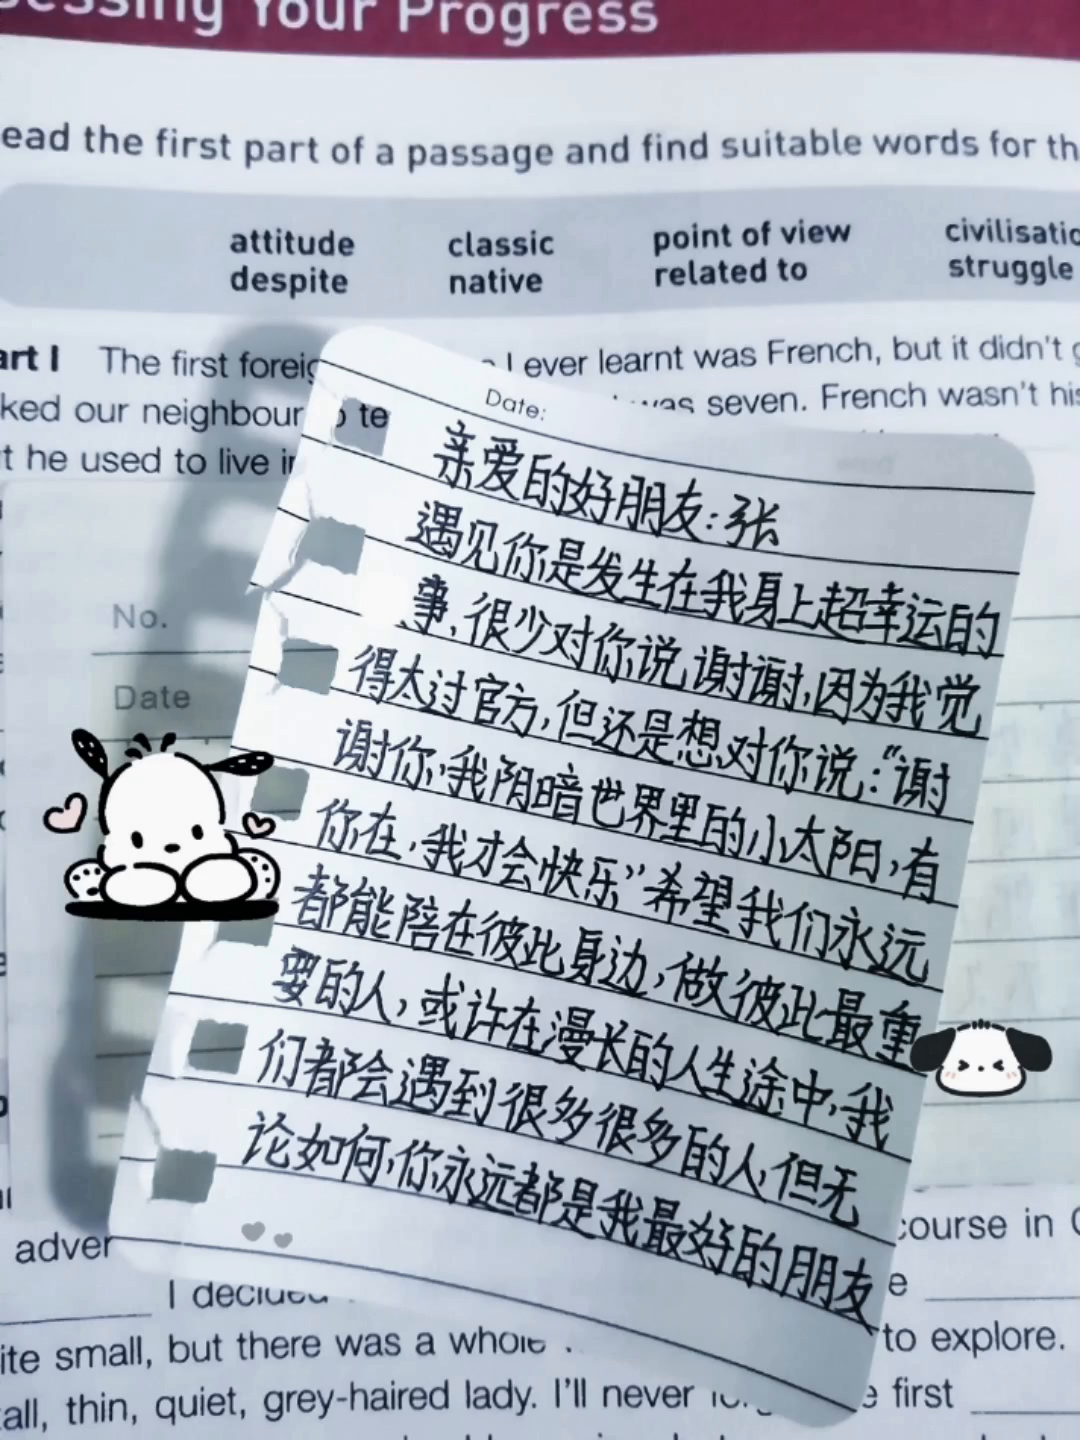 Your Progress
ead the first part of a passage and find suitable words for th
attitude classic point of view
despite native related to struggle
art I The first I ever learnt was French, but it didn't
ked our neighbour te was seven. French wasn't his
t he used to live
No.
Date
Date:
亲爱的好朋友:张
遇见你是发生在我身上超幸运的
事,很少对你说,谢谢,因为我觉
得太过官方,但还是想对你说:“谢
谢你,我阴暗世界里的小太阳,有
你在,我才会快乐”希望我们永远
都能陪在彼此身边,做彼此最重
要的人,或许在漫长的人生途中,我
们都会遇到很多很多的人,但无
论如何,你永远都是我最好的朋友
adver course in
I decided e
ite small, but there was a whole to explore.
all, thin, quiet, grey-haired lady. I'll never first